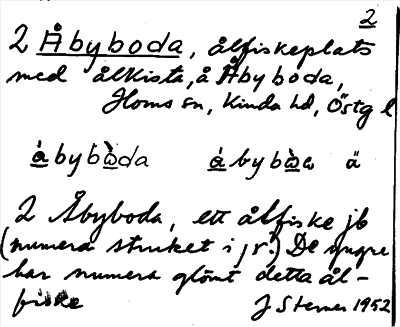 2
2 Åbyboda, ålfiskeplats
med ålkista, å Åbyboda,
Horns sn, Kinda hd, Östg l
ábybὼda ábybὼa ä
2 Åbyboda, ett ålfiske jb
(numera struket i jr.) De yngre
har numera glömt detta ål-
fiske J Sterner 1952